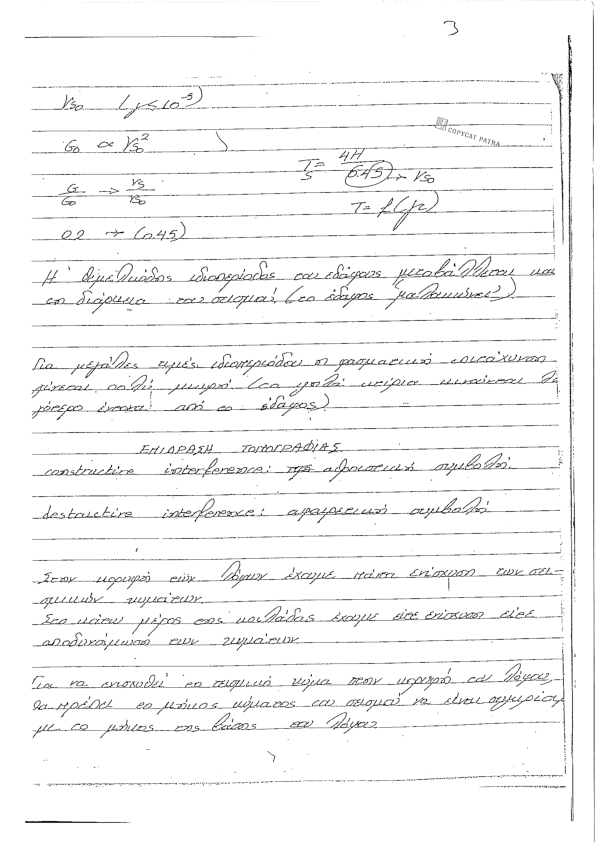 3
Vso (γ≤10⁻⁵)
COPYCAT PATRA
Go ∝ Vso²
T = 4H / (0.45) → Vso
S
G/Go → Vs/Vso
T = f(γ)
0.2 → (0.45)
Η θεμελιώδης ιδιοπερίοδος του εδάφους μεταβάλλεται κατά
τη διάρκεια του σεισμού (το έδαφος "μαλακώνει")
Για μεγάλες τιμές ιδιοπεριόδου η φασματική επιτάχυνση
γίνεται πολύ μικρή (τα ψηλά κτίρια κινούνται λι
γότερο έντονα από το έδαφος)
ΕΠΙΔΡΑΣΗ ΤΟΠΟΓΡΑΦΙΑΣ
constructive interference: αθροιστική συμβολή
destructive interference: αφαιρετική συμβολή
Στην κορυφή των λόφων έχουμε πάντα ενίσχυση των σει-
σμικών κυμάτων
Στο κάτω μέρος της κοιλάδας έχουμε είτε ενίσχυση είτε
αποδυνάμωση των κυμάτων
Για να ενισχυθεί το σεισμικό κύμα στην κορυφή του λόφου,
θα πρέπει το μήκος κύματος του σεισμού να είναι συγκρίσιμο
με το μήκος της βάσης του λόφου